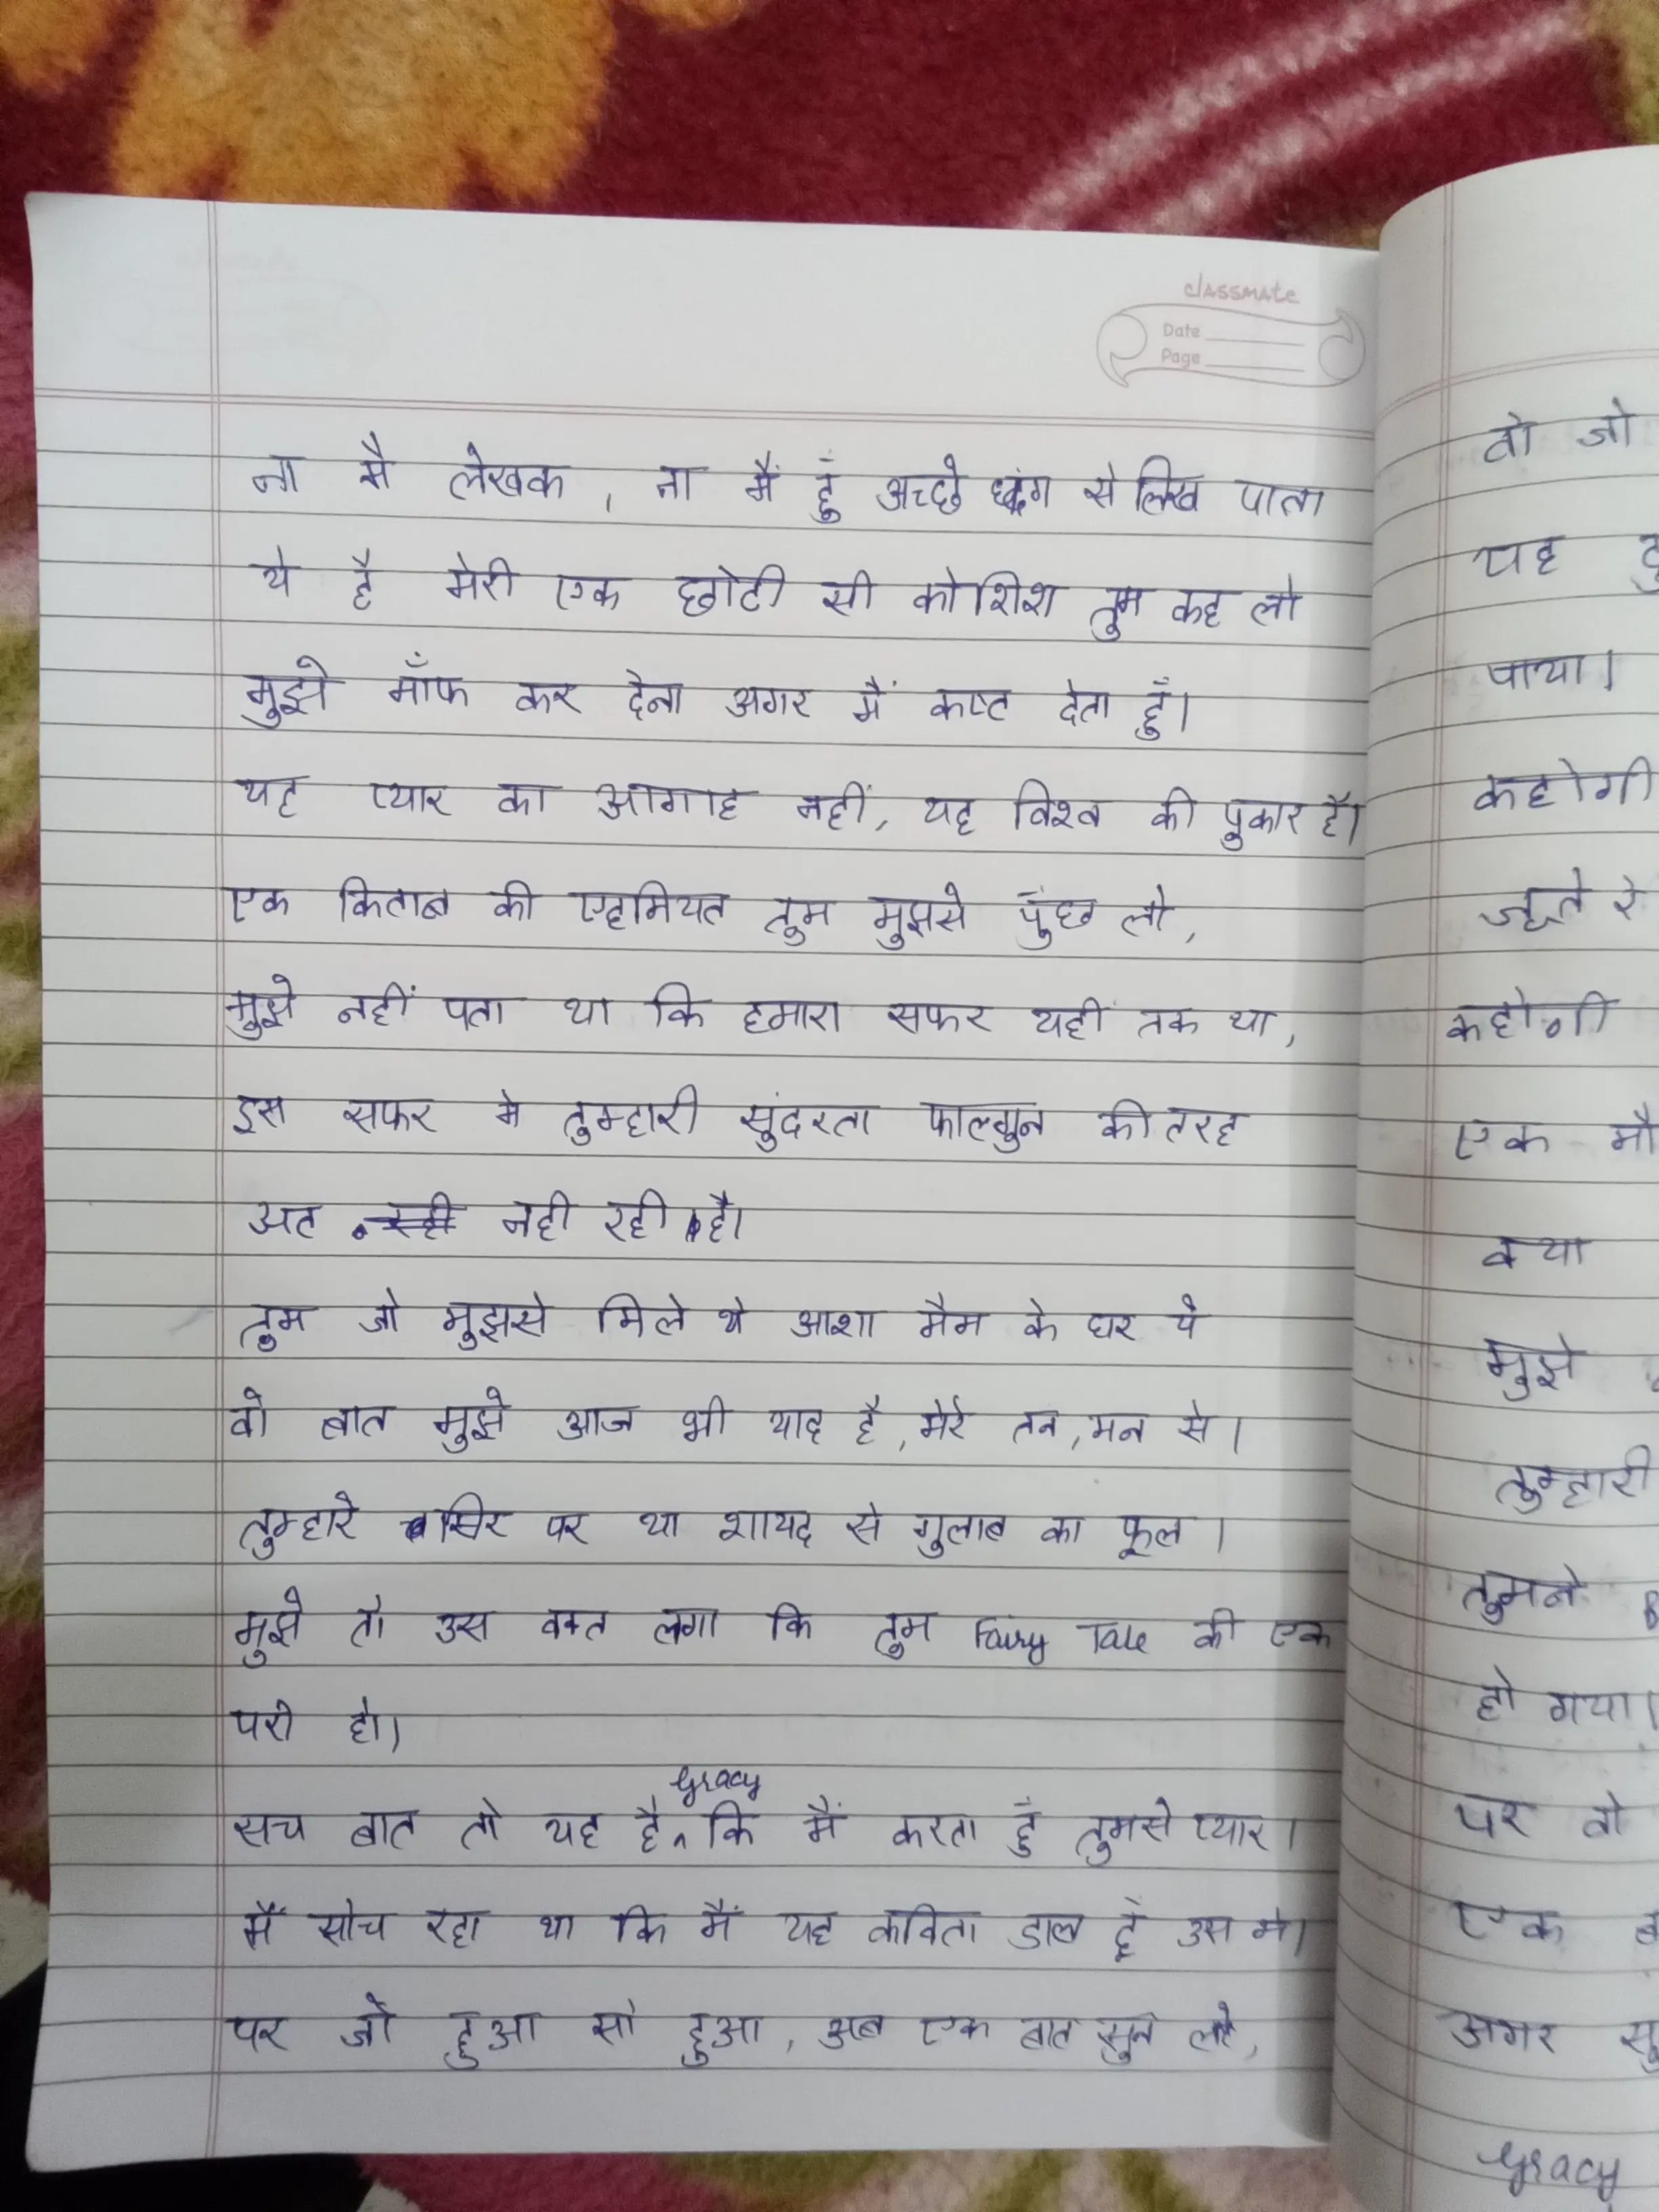 classmate
Date
Page
ना मै लेखक, ना मैं हुँ अच्छे ढंग से लिख पाता
ये है मेरी एक छोटी सी कोशिश तुम कह लो
मुझे माँफ कर देना अगर मैं कष्ट देता हुँ।
यह प्यार का आगाह नहीं, यह विश्व की पुकार है।
एक किताब की एहमियत तुम मुझसे पुंछ लो,
मुझे नहीं पता था कि हमारा सफर यही तक था,
इस सफर मे तुम्हारी सुंदरता फाल्गुन की तरह
अट नही रही है।
तुम जो मुझसे मिले थे आशा मैम के घर पे
वो बात मुझे आज भी याद है, मेरे तन, मन से।
तुम्हारे सिर पर था शायद से गुलाब का फूल।
मुझे तो उस वक्त लगा कि तुम Fairy Tale की एक
परी हो।
सच बात तो यह है Gracy कि मैं करता हुँ तुमसे प्यार।
मैं सोच रहा था कि मैं यह कविता डाल दुँ उस मे।
पर जो हुआ सो हुआ, अब एक बात सुन लो,
वो जो
यह
पाया।
कहोगी
कहोगी
एक
क्या
मुझे
तुम्हारी
तुमने
हो गया।
पर वो
एक
अगर
Gracy